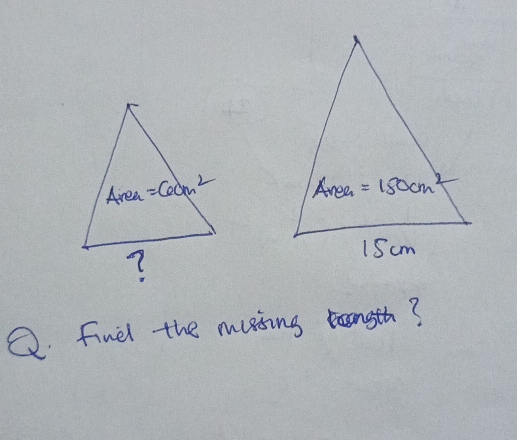 Area = 60cm²
Area = 150cm²
?
15cm
Q. Find the missing ?